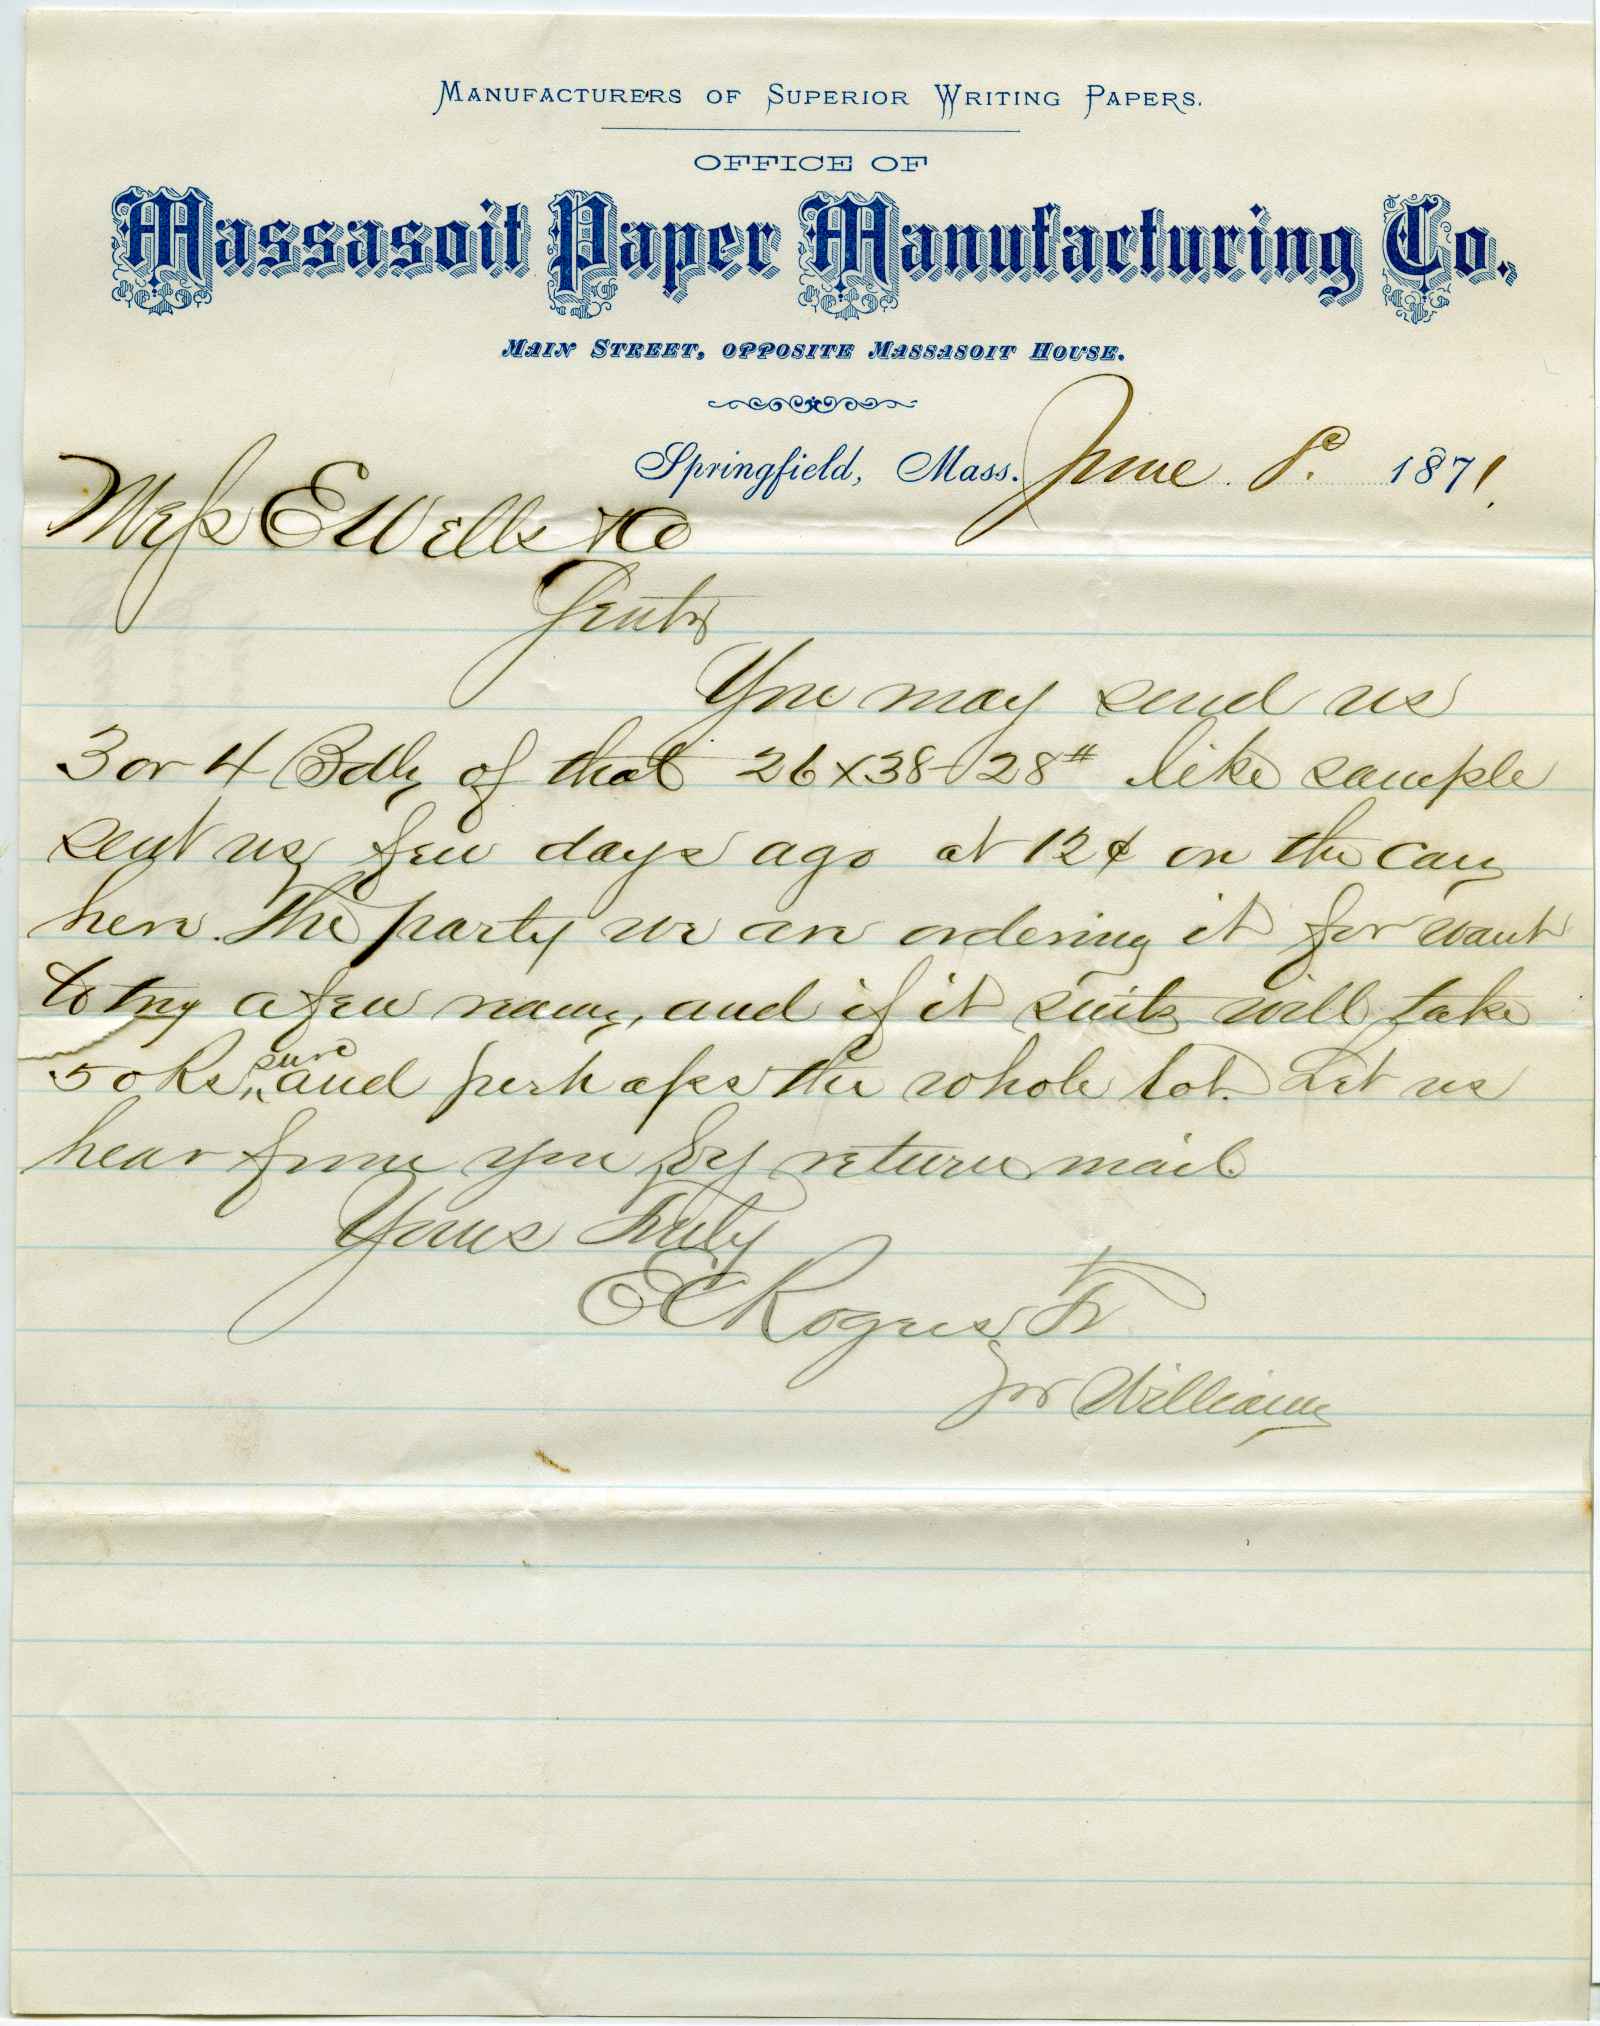 MANUFACTURERS OF SUPERIOR WRITING PAPERS.
OFFICE OF
Massasoit Paper Manufacturing Co.
MAIN STREET, OPPOSITE MASSASOIT HOUSE.
Springfield, Mass. June 8. 1871.
Mess E Wells & Co
Gents
You may send us
3 or 4 Bdls of that 26 x 38 - 28# like sample
sent us few days ago at 12¢ on the cars
here. The party we are ordering it for want
to try a few reams, and if it suits will take
50 Rs sure and perhaps the whole lot. Let us
hear from you by return mail.
Yours Truly
E C Rogers Tr
for Williams